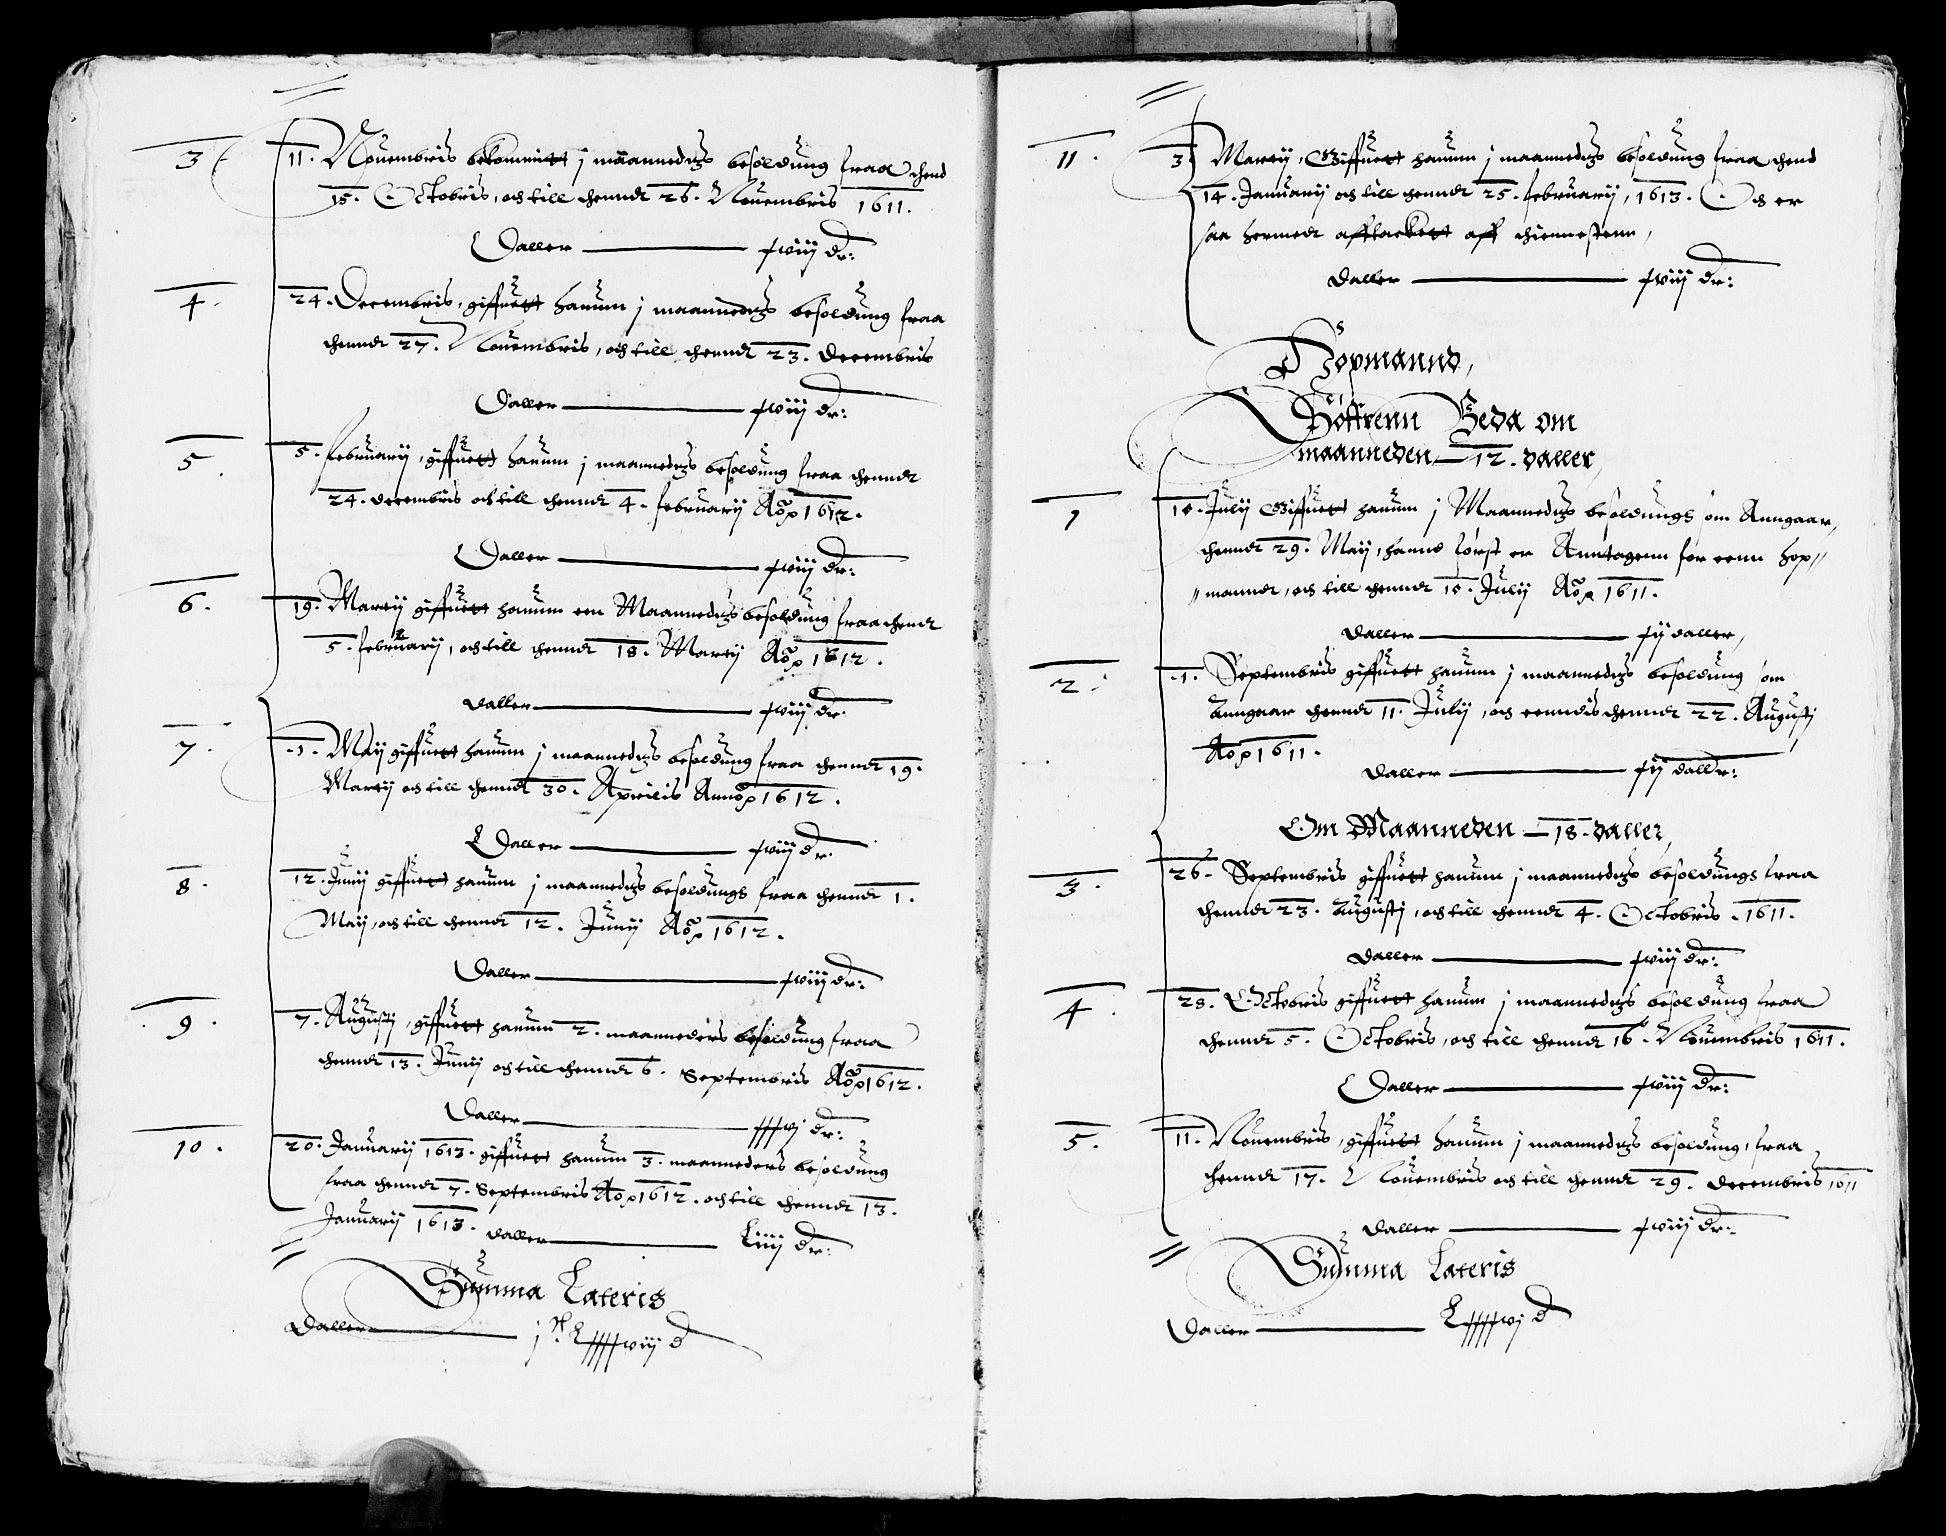 3
11. Nouembris bekommitt j maannedtzs besoldung fraa thend
15. Octobris, och till thenndt 26. Nouembris 1611.
Daller —— xviij dr:
4.
24. Decembris, giffuett hanum j maannedtzs besoldung fraa
thenndt 27. Nouembris, och till thenndt 23. Decembris
Daller —— xviij dr:
5.
5. februarij, giffuett hanum j maannedtzs besoldung fraa thenndt
24. decembris och till thenndt 4. februarij Aõp 1612.
Daller —— xviij dr:
6.
19. Martij giffuett hanum een Maannedtzs besoldung fraa thendt
5. februarij, och till thenndt 18. Martij Aõp 1612.
daller —— xviij dr.
7.
1. Maij giffuett hanum j maannedtzs besoldung fraa thenndt 19.
Martij och till thenndt 30. Aprilis Annõp 1612.
Daller —— xviij dr.
8.
12. Junij giffuett hanum j maannedtzs besoldungs fraa thenndt 1.
Maij, och till thenndt 12. Junij Aõp 1612.
Daller —— xviij dr:
9.
7. Augustj, giffuett hanum 2. maanneders besoldung fraa
thenndt 13. Junij och till thenndt 6. Septembris Aõp 1612.
Daller —— xxxvj dr:
10.
20. Januarij 1613. giffuett hanum 3. maanneders besoldung
fraa thenndt 7. Septembris Aop 1612. och till thenndt 13.
Januarij 1613. daller —— Liiij dr:
Summa Lateris
Daller —— jc Lxxxxviij d
11.
3. Martij, Giffuett hanum j maannedtzs besoldung fraa thend
14. Januarij och till thenndt 25. februarij, 1613. Och er
saa hermedt afftacket aff thiennestenn,
daller —— xviij dr:
Höpmannd,
Göffrenn Beda om
maanneden — 12. daller,
1
10. Julij Giffuett hanum j Maannedtzs besoldungs om Anngaar,
thenndt 29. Maij, hannd först er Anntagenn for eenn hop//
//manndt, och till thenndt 10. Julij Aõp 1611.
daller —— xij daller,
2.
1. Septembris giffuett hanum j maannedtzs besoldung om
Anngaar thenndt 11. Julij, och eenndis thenndt 22. Augustj
Aop 1611.
daller —— xij dallr:
Om Maanneden — 18. daller,
3.
26. Septembris giffuett hanum j maannedtzs besoldungs fraa
thenndt 23. Augustj, och till thenndt 4. Octobris. 1611.
daller —— xviij dr:
4.
28. Octobris giffuett hanum j maannedtzs besoldung fraa
thenndt 5. Octobris, och till thenndt 16. Nouembris 1611.
Daller —— xviij dr:
5.
11. Nouembris, giffuett hanum j maannedtzs besoldung, fraa
thenndt 17. Nouembris och till thenndt 29. decembris 1611
daller —— xviij dr:
Summa Lateris
Daller —— Lxxxxvj d